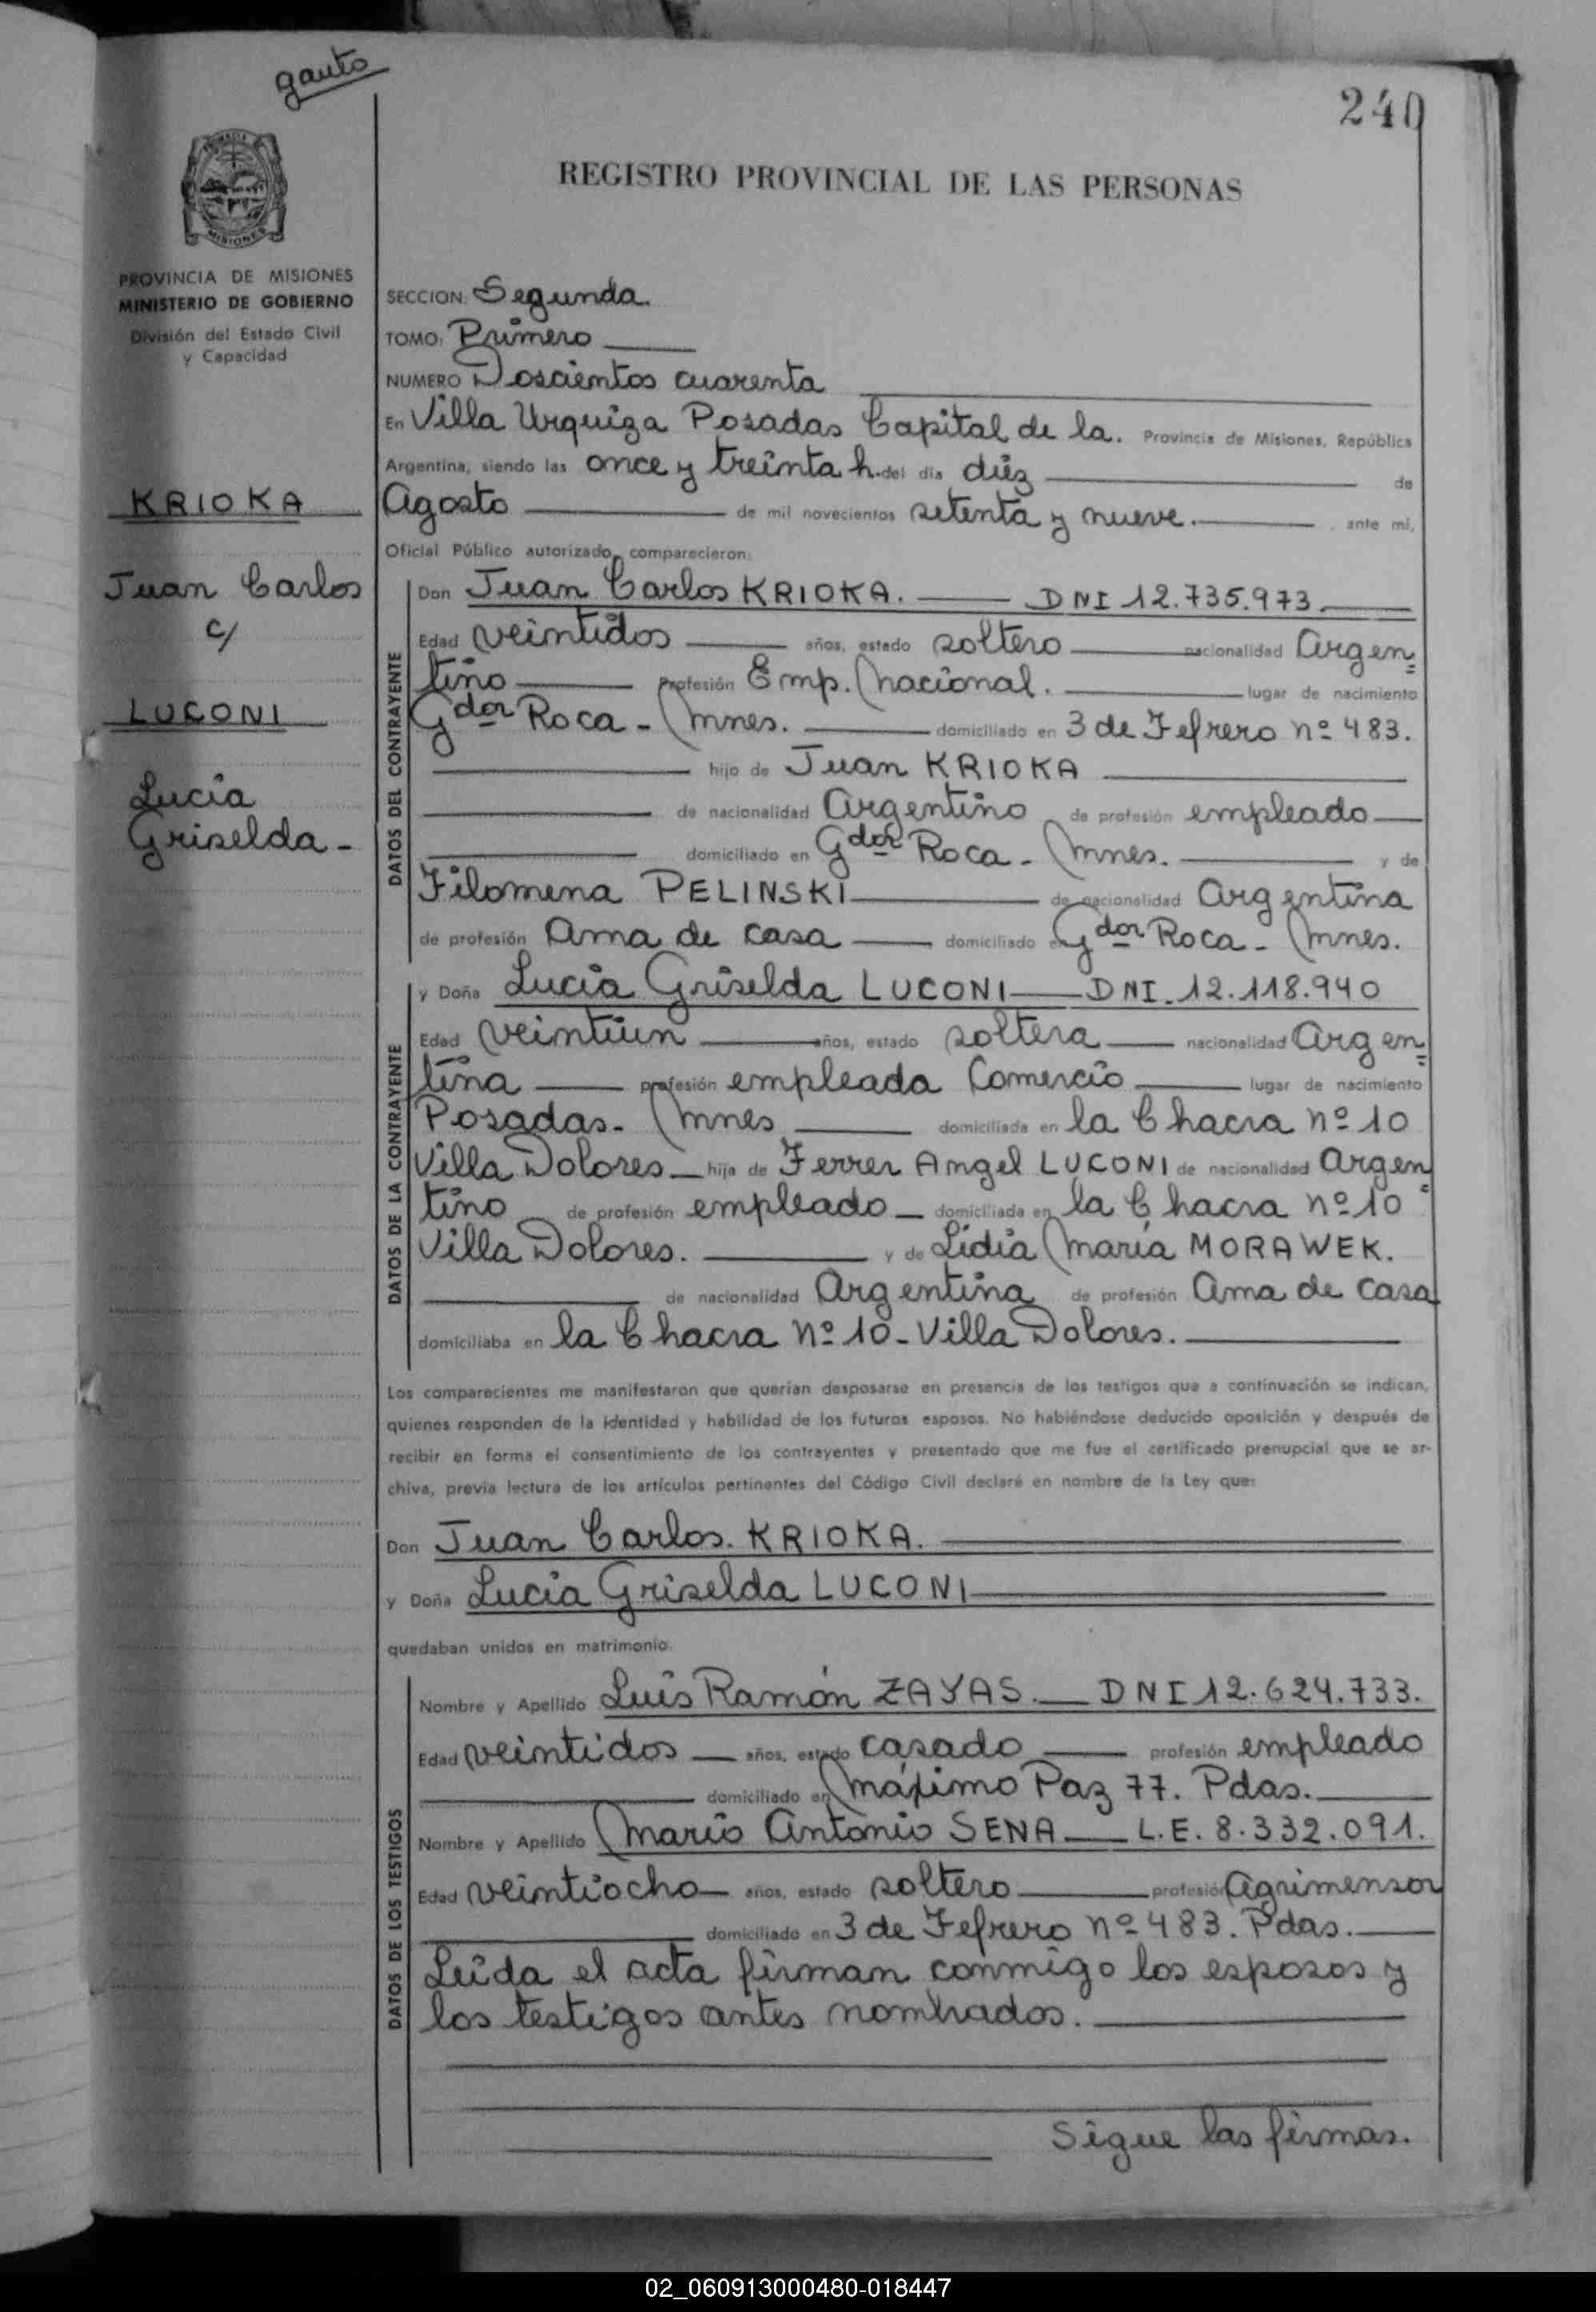 gauto
240
REGISTRO PROVINCIAL DE LAS PERSONAS
PROVINCIA DE MISIONES
MINISTERIO DE GOBIERNO
División del Estado Civil
y Capacidad
KRIOKA
Juan Carlos
c/
LUCONI
Lucia
Griselda -
SECCION: Segunda.
TOMO: Primero
NUMERO Doscientos cuarenta
En Villa Urquiza Posadas Capital de la. Provincia de Misiones, República
Argentina, siendo las once y treinta h. del día diez de
Agosto de mil novecientos setenta y nueve. ante mi,
Oficial Público autorizado, comparecieron:
DATOS DEL CONTRAYENTE
Don Juan Carlos KRIOKA. DNI 12.735.973.
Edad veintidos años, estado soltero nacionalidad Argen=
tino Profesión Emp. Nacional. lugar de nacimiento
Gdor Roca - Mnes. domiciliado en 3 de Febrero nº 483.
hijo de Juan KRIOKA
de nacionalidad Argentino de profesión empleado
domiciliado en Gdor Roca - Mnes. y de
Filomena PELINSKI de nacionalidad Argentina
de profesión Ama de casa domiciliado en Gdor Roca - Mnes.
DATOS DE LA CONTRAYENTE
y Doña Lucia Griselda LUCONI DNI. 12.118.940
Edad veintiun años, estado soltera nacionalidad Argen=
tina profesión empleada Comercio lugar de nacimiento
Posadas - Mnes domiciliada en la Chacra nº 10
Villa Dolores hija de Ferrer Angel LUCONI de nacionalidad Argen=
tino de profesión empleado domiciliada en la Chacra nº 10
Villa Dolores. y de Lidia Maria MORAWEK.
de nacionalidad Argentina de profesión Ama de casa
domiciliaba en la Chacra nº 10 - Villa Dolores.
Los comparecientes me manifestaron que querían desposarse en presencia de los testigos que a continuación se indican,
quienes responden de la identidad y habilidad de los futuros esposos. No habiéndose deducido oposición y después de
recibir en forma el consentimiento de los contrayentes y presentado que me fue el certificado prenupcial que se ar-
chiva, previa lectura de los artículos pertinentes del Código Civil declaré en nombre de la Ley que:
Don Juan Carlos. KRIOKA.
y Doña Lucia Griselda LUCONI
quedaban unidos en matrimonio.
DATOS DE LOS TESTIGOS
Nombre y Apellido Luis Ramón ZAYAS. DNI 12.624.733.
Edad veintidos años, estado casado profesión empleado
domiciliado en Máximo Paz 77. Pdas.
Nombre y Apellido Mario Antonio SENA L.E. 8.332.091.
Edad veintiocho años, estado soltero profesión Agrimensor
domiciliado en 3 de Febrero nº 483. Pdas.
Leida el acta firman conmigo los esposos y
los testigos antes nombrados.
Sigue las firmas.
02_060913000480-018447